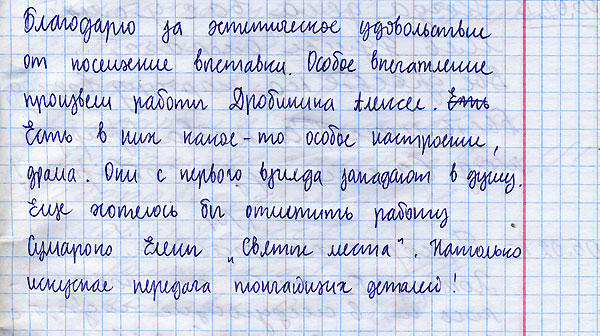 Благодарю за эстетическое удовольствие
от посещение выставки. Особое впечатление
произвели работы Дробинина Алексея. Есть
Есть в них какое-то особое настроение,
драма. Они с первого взгляда западают в душу.
Еще хотелось бы отметить работу
Сумароко Елены „Святые места". Настолько
искусная передача тончайших деталей!